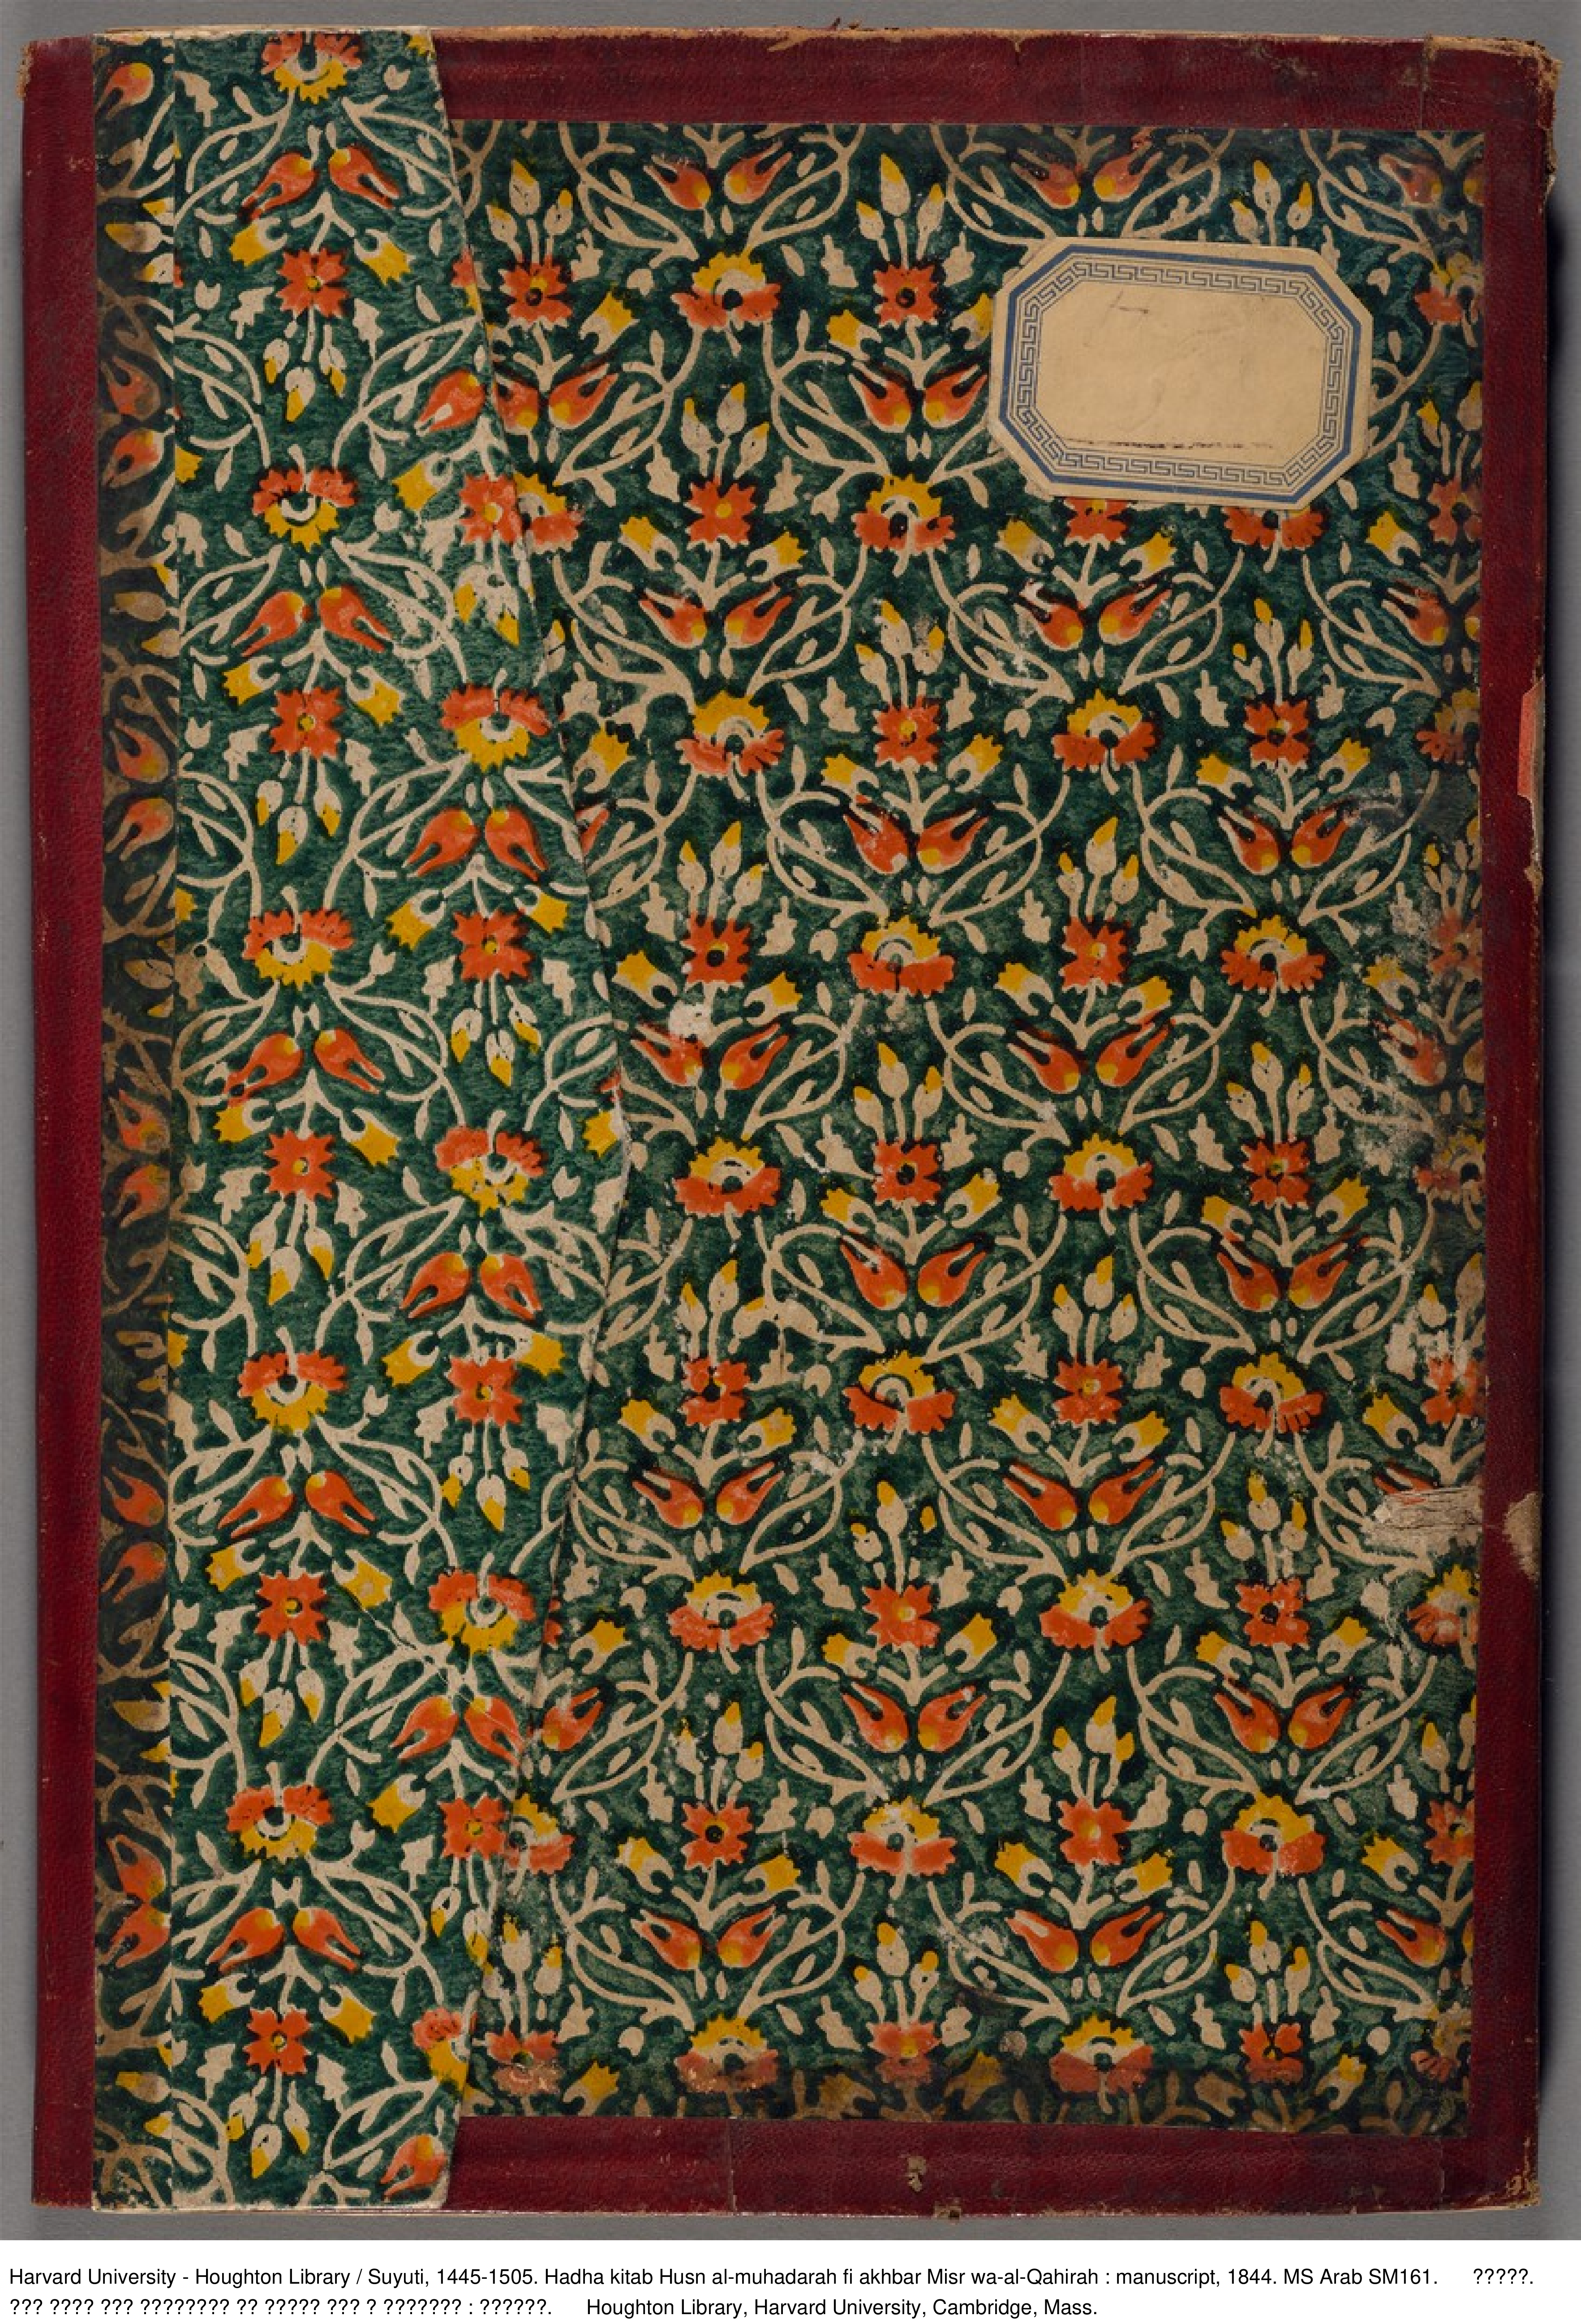 Harvard University - Houghton Library / Suyuti, 1445-1505. Hadha kitab Husn al-muhadarah fi akhbar Misr wa-al-Qahirah : manuscript, 1844. MS Arab SM161. ?????.
??? ???? ??? ???????? ?? ????? ??? ? ??????? : ??????. Houghton Library, Harvard University, Cambridge, Mass.